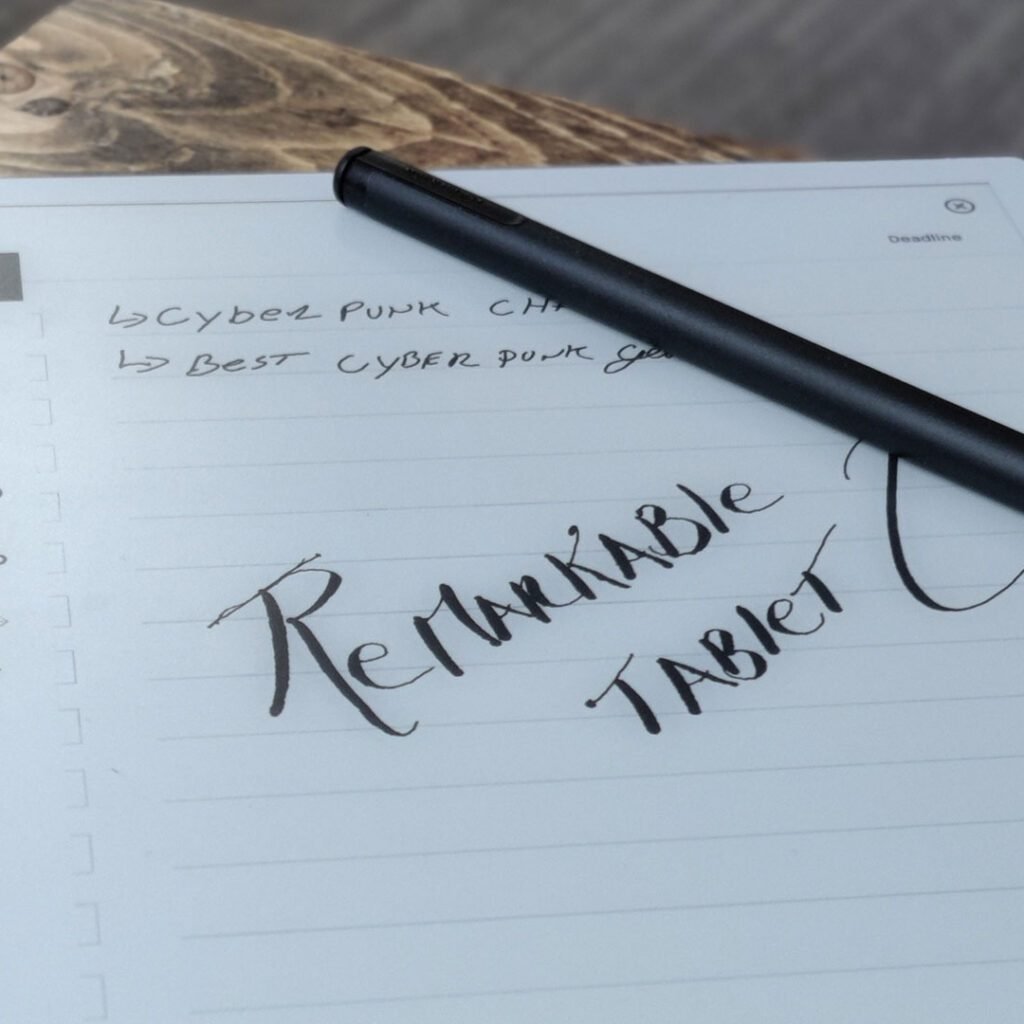 Deadline
↳ Cyber PUNK
↳ BEST CYBER PUNK
ReMARKABle
TABleT